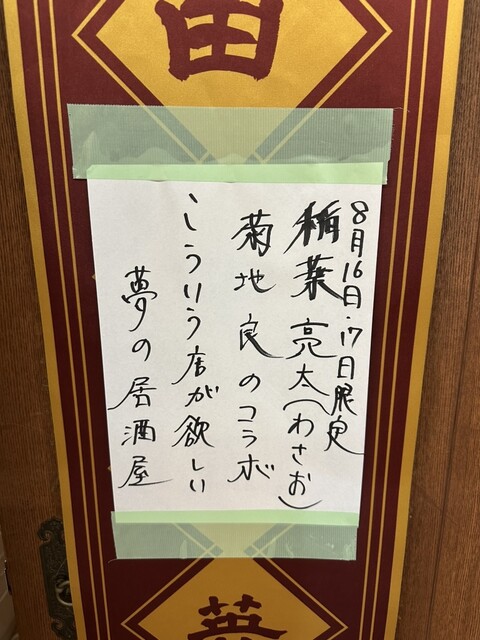 8月16日・17日限定
稲葉亮太(わさお)
菊地良のコラボ
こういう店が欲しい
夢の居酒屋